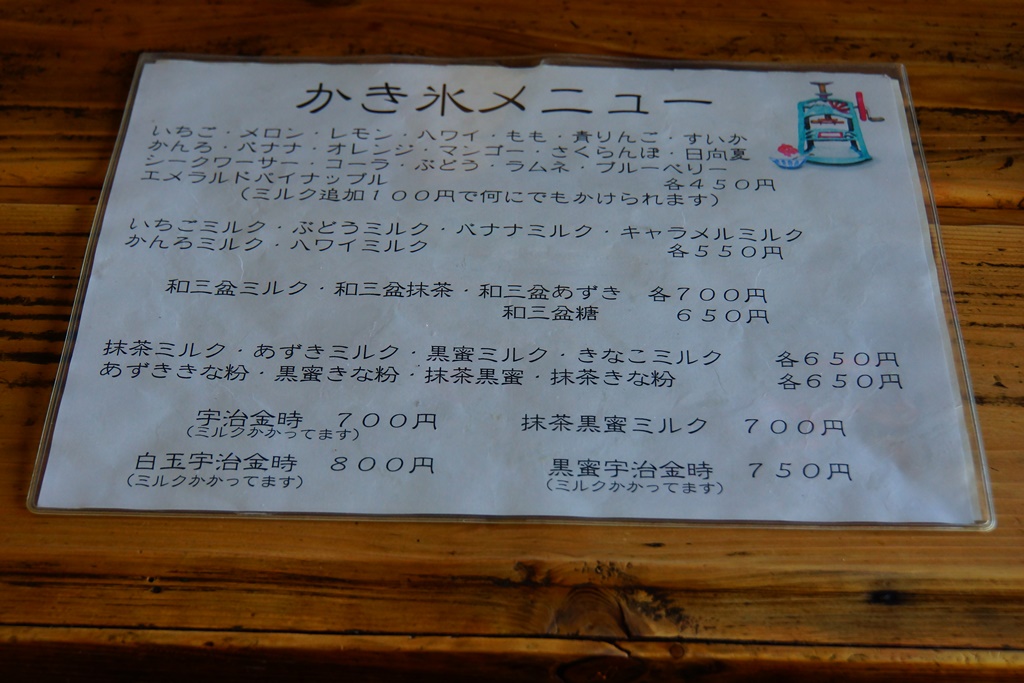 かき氷メニュー
いちご・メロン・レモン・ハワイ・もも・青りんご・すいか
かんろ・バナナ・オレンジ・マンゴー・さくらんぼ・日向夏
シークワーサー・コーラ・ぶどう・ラムネ・ブルーベリー
エメラルドパイナップル 各450円
(ミルク追加100円で何にでもかけられます)
いちごミルク・ぶどうミルク・バナナミルク・キャラメルミルク
かんろミルク・ハワイミルク 各550円
和三盆ミルク・和三盆抹茶・和三盆あずき 各700円
和三盆糖 650円
抹茶ミルク・あずきミルク・黒蜜ミルク・きなこミルク 各650円
あずききな粉・黒蜜きな粉・抹茶黒蜜・抹茶きな粉 各650円
宇治金時 700円 抹茶黒蜜ミルク 700円
(ミルクかかってます)
白玉宇治金時 800円 黒蜜宇治金時 750円
(ミルクかかってます) (ミルクかかってます)